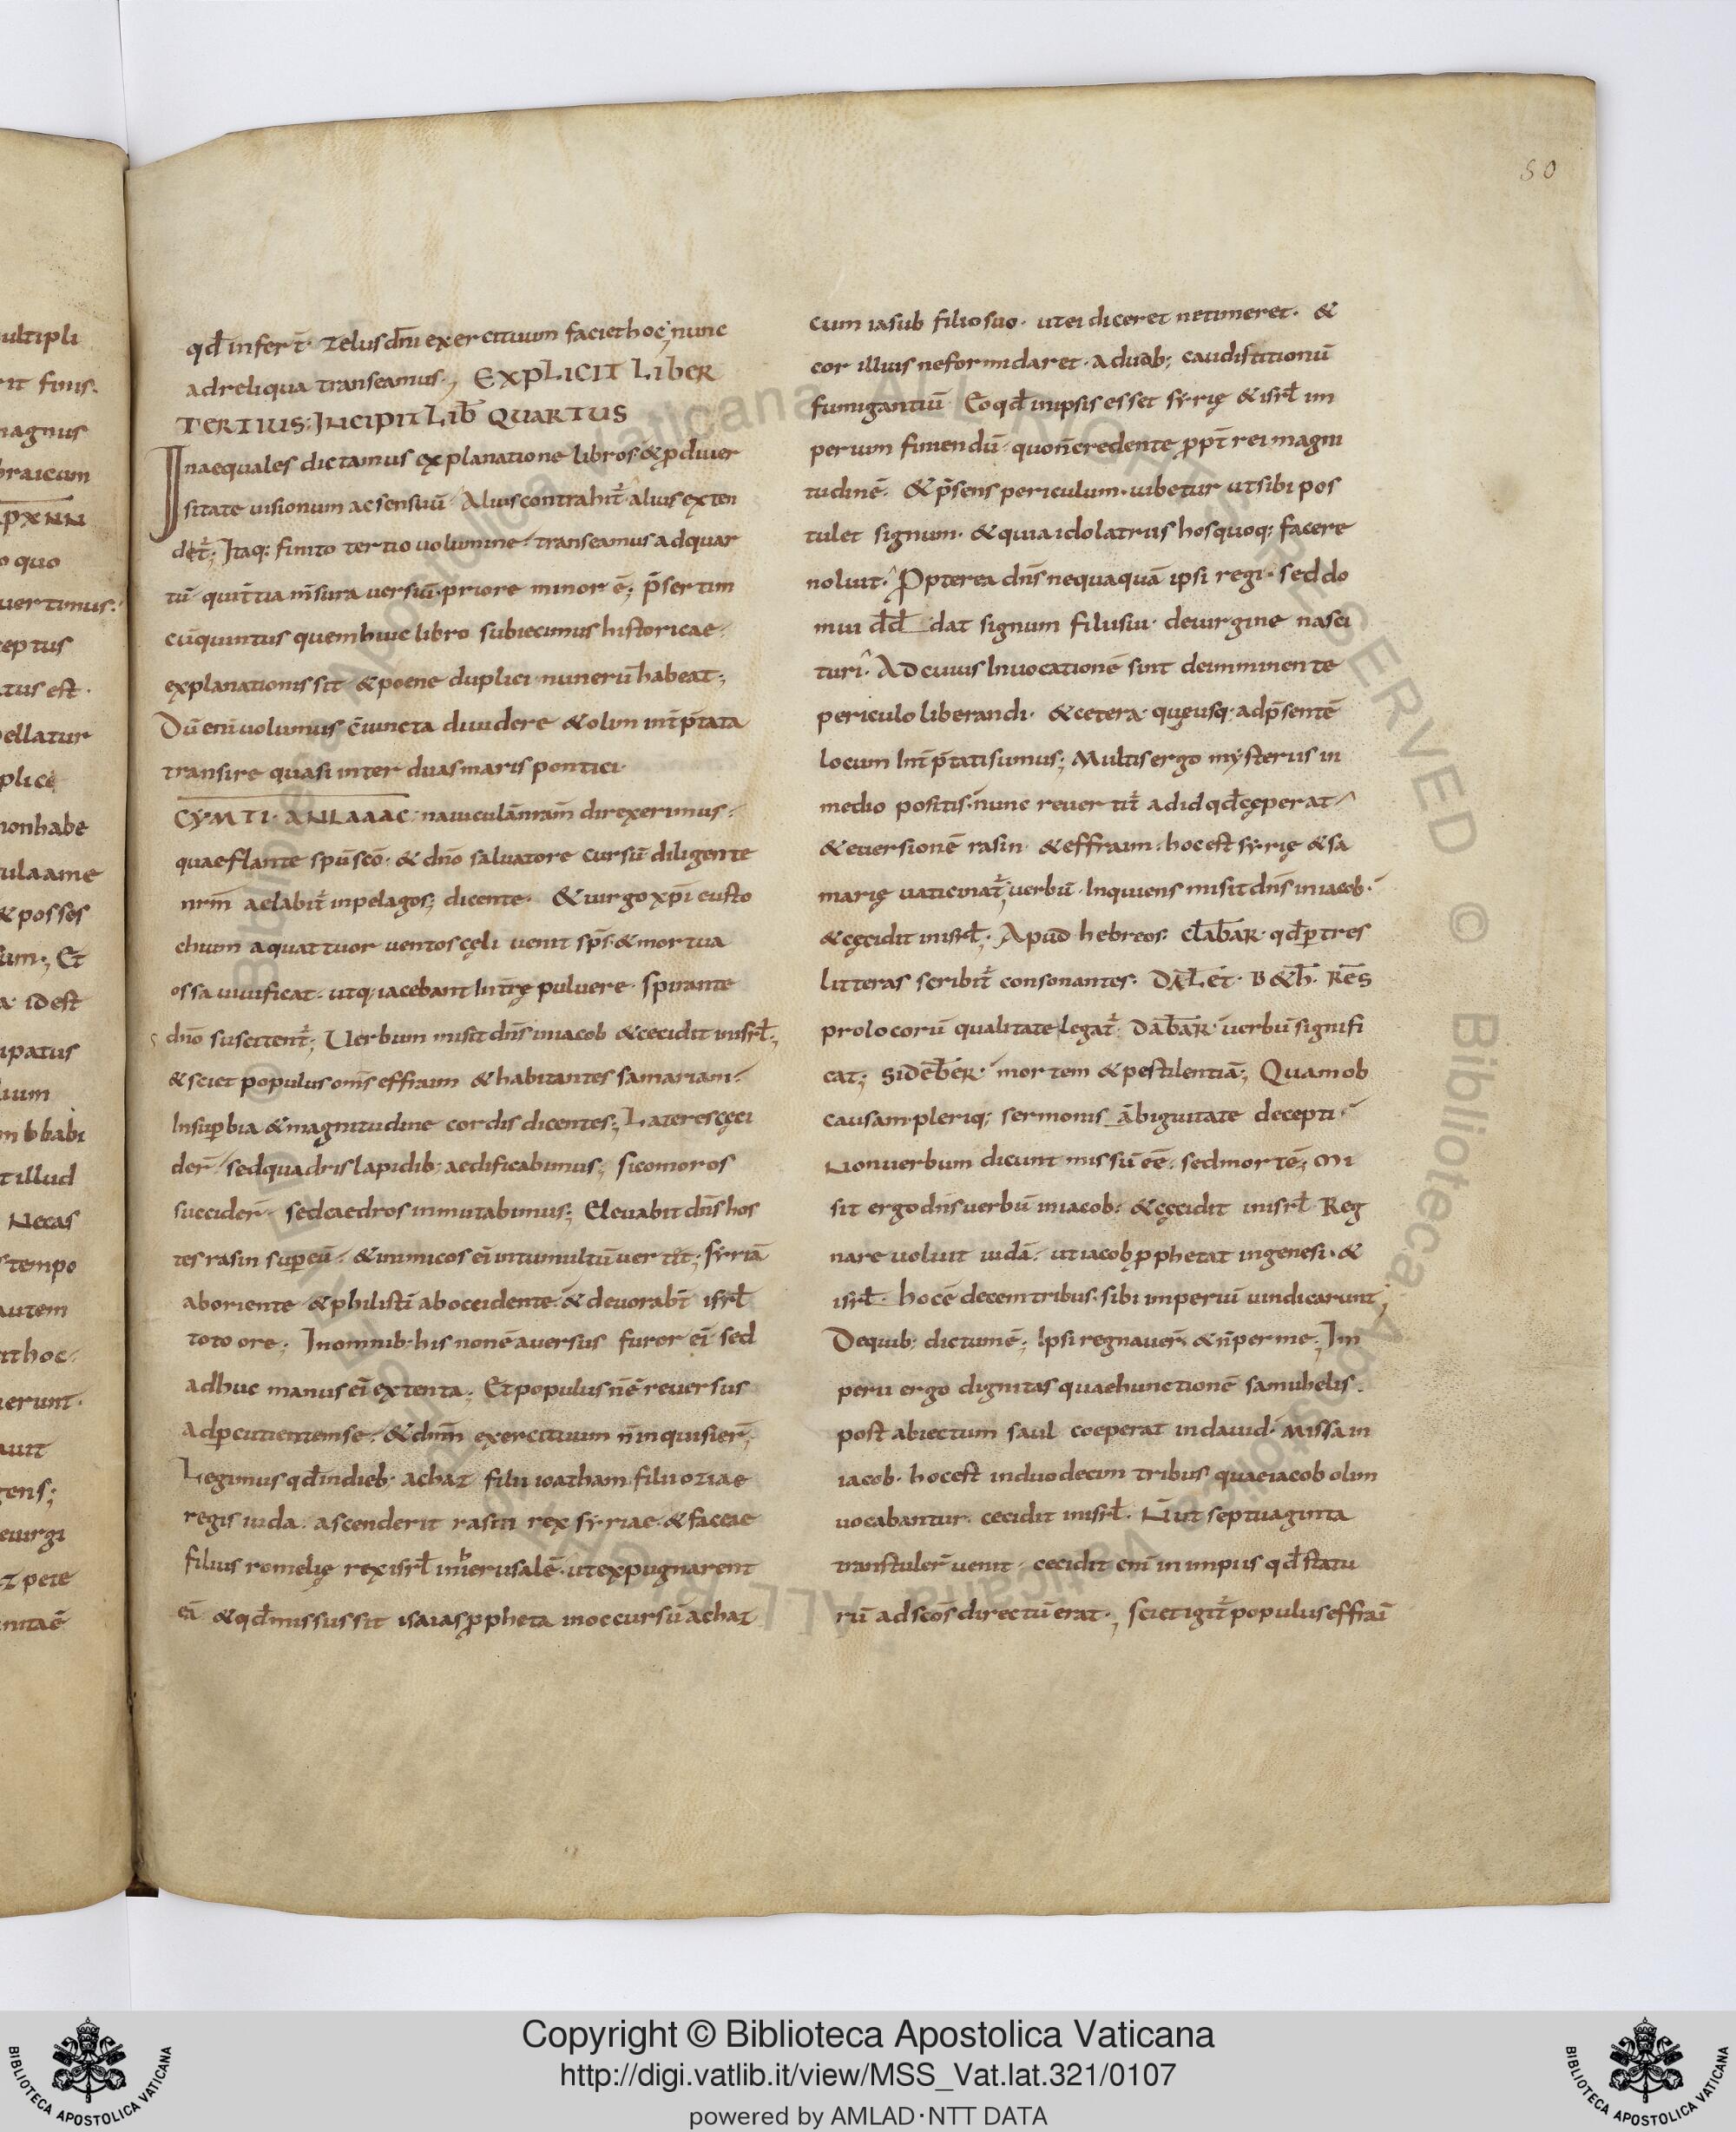 ultipli
rit finis.
magnus
braicum
pxNN
o quo
uertimus:
ceptus
atus est.
pellatur
plice
nonhabe
tula ame
& posses
sum; Et
a. id est
upatus
lium
m b babi
t illud
Necas
s tempo
autem
nt hoc.
uerunt.
auit
gens;
euirgi
az pete
nitaē
50
qđ infert̄. zelus dn̄i exercituum faciet hoc; nunc
ad reliqua transeamus; EXPLICIT LIBER
TERTIUS: INCIPIT LIB̄ QUARTUS
Inaequales dictamus explanatione libros & ꝓ diuer
sitate uisionum ac sensuū. Alius contrahit᷑. alius exten
det᷑; Itaq; finito tertio uolumine. transeamus ad quar
tū. quī t̄tia m̄sura uersuū. priore minor ē; p̄sertim
cū quintus quem huic libro subiecimus historicae.
explanationis sit & poene duplicī numerū habeat;
Dū enī uolumus c̄iuncta diuidere & olim int̄p̄tata
transire quasi inter duas maris pontici.
CYMTI. ANLAAAC. nauiculā nrām direxerimus.
quae flante spū scō. & dn̄o saluatore cursū diligente
nrm̄ aelabit᷑ in pelagos; dicente. & uirgo xp̄i eusto
chium a quattuor uentos cęli uenit sp̄s. & mortua
ossa uiuificat. ut q; iacebant In t̄rę puluere. spirante
dn̄o suscitent᷑; Uerbum misit dn̄s in iacob & cecidit in isrl̄;
& sciet populus om̄s effraim & habitantes samariam.
In suꝑbia & magnitudine cordis dicentes; Lateres cęci
der̄. sed quadris lapidib; aedificabimus; sicomoros
succider̄. sed caedros inmutabimus; Eleuabit dn̄s hos
tes rasin suꝑ eū. & inimicos eī in tumultū uertit; syriā
ab oriente & philistī ab occidente. & deuorabt̄ isrl̄
toto ore; In omnib; his non ē auersus furor eī sed
adhuc manus eī extenta; Et populus n̄ ē reuersus
ad ꝑcutientem se. & dnm̄ exercituum n̄ inquisier̄;
Legimus qđ in dieb; achaz filii ioatham filii oziae
regis iuda. ascenderit rasin rex syriae. & faceae
filius romelię rex isrl̄ in hierusalē. ut expugnarent
eā & qđ missus sit isaias ꝓpheta in occursū achaz
cum iasub filio suo. ut ei diceret ne timeret. &
cor illius ne formidaret. a duab; caudis titionū
fumigantiū Eo qđ in ipsis esset syrię & isrl̄ im
perium finiendū. quo n̄ credente ꝓpt̄ rei magni
tudinē. & p̄sens periculum. iubetur ut sibi pos
tulet signum. & quia idolatriis hos quoq; facere
noluit. Ꝓpterea dn̄s nequaquā ipsi regi. sed do
mui dđ dat signum filii sui. de uirgine nasci
turi. Ad cuius Inuocationē sint de imminente
periculo liberandi. & cetera. quę usq; ad p̄sentē
locum Int̄p̄tati sumus; Multis ergo mysteriis in
medio positis. nunc reuertit᷑ ad id qđ cęperat
& euersionē rasin & effraim. hoc est syrię & sa
marię uaticinat᷑; uerbū. Inquiens misit dn̄s in iacob.
& cęcidit in isrl̄; Apud hebreos. CLABAR. qđ ꝑ tres
litteras scribit᷑ consonantes. DALET. B&H. RES
pro locorū qualitate legat᷑. DABAR. uerbū signifi
cat; SI DEBER. mortem & pestilentiā; Quam ob
causam pleriq; sermonis ābiguitate decepti.
Non uerbum dicunt missū eē. sed mortē; Mi
sit ergo dn̄s uerbū in iacob. & cęcidit in isrl̄ Reg
nare uoluit iudā. ut iacob ꝓphetat in genesi. &
isrl̄. hoc ē decem tribus. sibi imperiū uindicarunt;
De quib; dictum ē; Ipsi regnauer̄. & n̄ per me; Im
perii ergo dignitas quae hunctionē samuhelis.
post abiectum saul coeperat in dauid. missa in
iacob. hoc est in duodecim tribus quae iacob olim
uocabantur. cecidit in isrl̄. N̄ ut septuaginta
transtuler̄ uenit. cecidit enī in impiis qđ statu
rū ad scōs directū erat; sciet igit᷑ populus effraī
© Biblioteca Apostolica Vaticana. ALL RIGHTS RESERVED © Biblioteca Apostolica Vaticana. ALL RIGHTS RESERVED
BIBLIOTECA APOSTOLICA VATICANA
Copyright © Biblioteca Apostolica Vaticana
http://digi.vatlib.it/view/MSS_Vat.lat.321/0107
powered by AMLAD·NTT DATA
BIBLIOTECA APOSTOLICA VATICANA